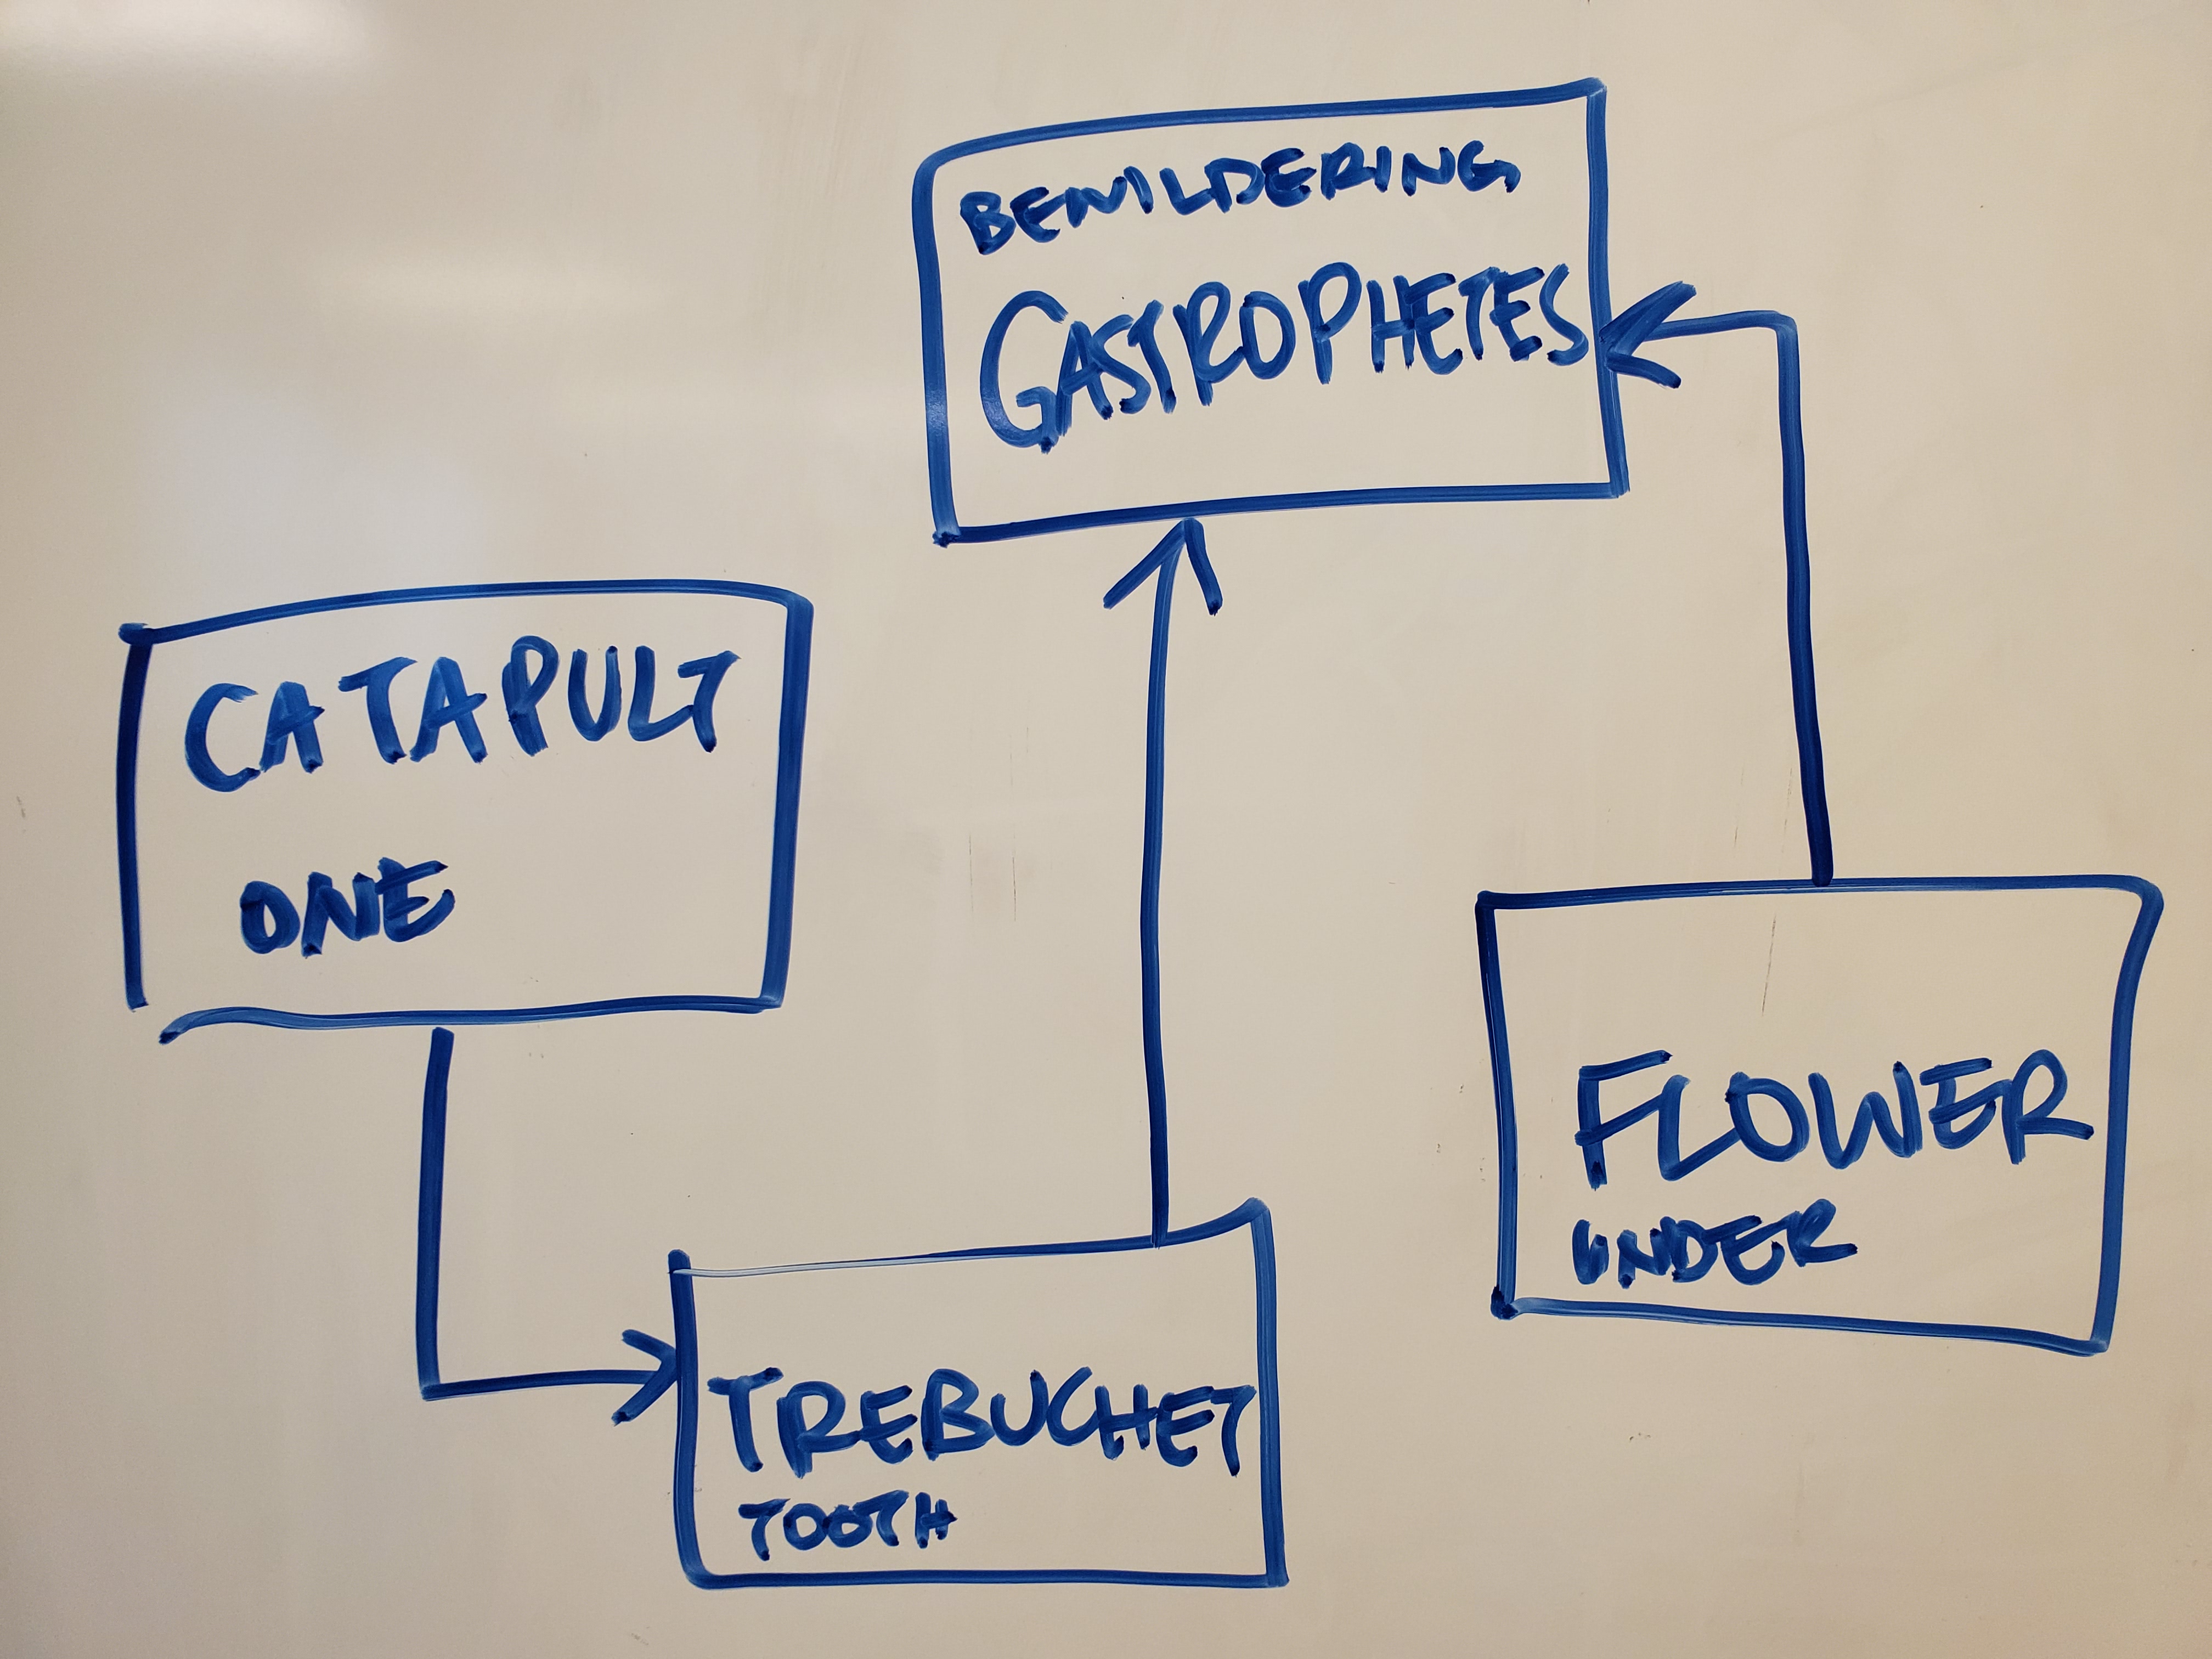 BEWILDERING
GASTROPHETES
CATAPULT
ONE
FLOWER
UNDER
TREBUCHET
TOOTH